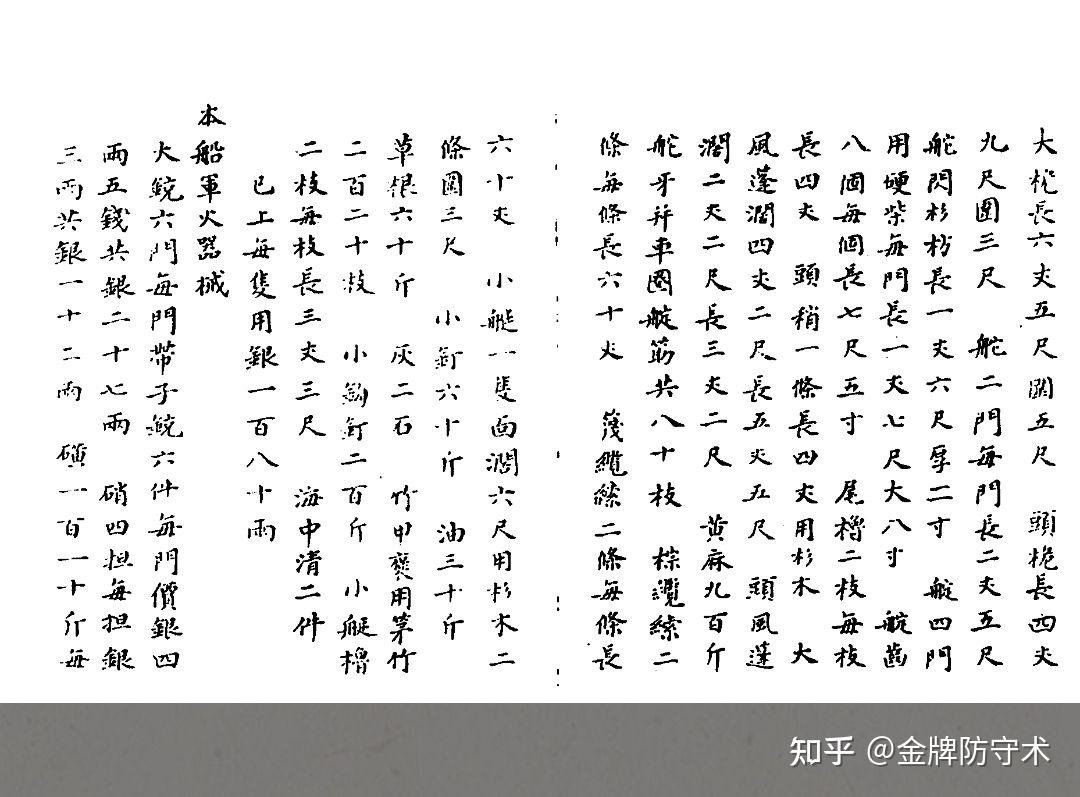 大桅長六丈五尺圍五尺　頭桅長四丈
九尺圍三尺　舵二門每門長二丈五尺
舵閃杉枋長一丈六尺厚二寸　舵四門
用硬柴每門長一丈七尺大八寸　舵齒
八個每個長七尺五寸　尾櫓二枝每枝
長四丈　頭稍一條長四丈用杉木　大
風蓬濶四丈二尺長五丈五尺　頭風蓬
濶二丈二尺長三丈二尺　黃麻九百斤
舵牙并車圓艇筋共八十枝　棕纜綜二
條每條長六十丈　篾纜綜二條每條長
六十丈　小艇一隻面濶六尺用杉木二
條圓三尺　小釘六十斤　油三十斤
草根六十斤　灰二石　竹甲襃用茅竹
二百二十枝　小鈎釘二百斤　小艇櫓
二枝每枝長三丈三尺　海中清二件
已上每隻用銀一百八十兩
本船軍火器械
大銃六門每門帶子銃六件每門價銀四
兩五錢共銀二十七兩　硝四担每担銀
三兩共銀一十二兩　磺一百一十斤每
知乎 @金牌防守术